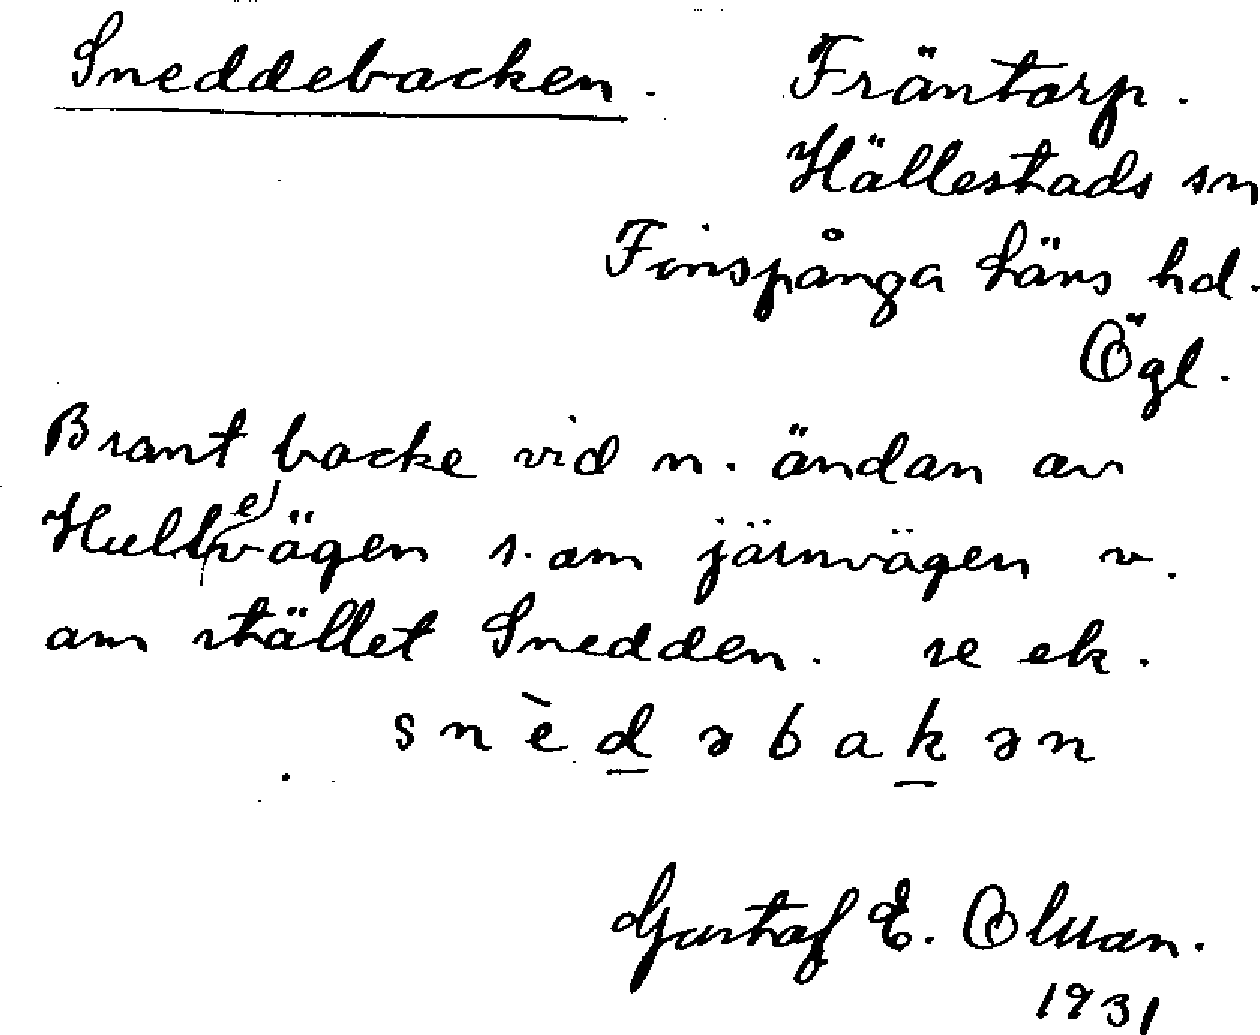 Sneddebacken. Fräntorp.
Hällestads sn
Finspånga läns hd.
Ögl.
Brant backe vid n. ändan av
Hultevägen s. om järnvägen v.
om stället Snedden. se ek.
snèdəbakən
Gustaf E. Olsson.
1931